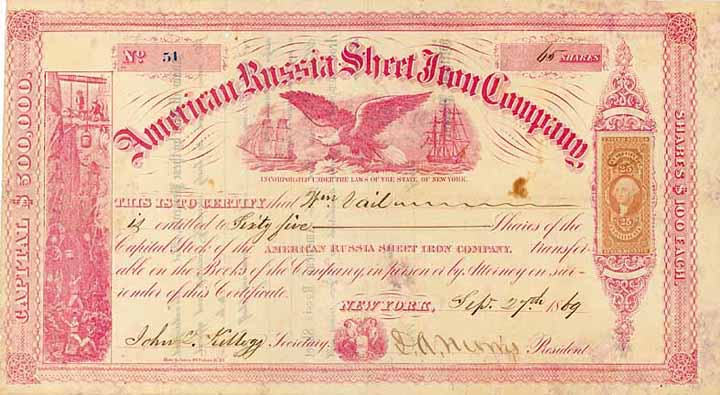 No 51
65 SHARES
American Russia Sheet Iron Company,
INCORPORATED UNDER THE LAWS OF THE STATE OF NEW YORK.
THIS IS TO CERTIFY that Wm Vail
is entitled to Sixty five Shares of the
Capital Stock of the AMERICAN RUSSIA SHEET IRON COMPANY. Transfer-
able on the Books of the Company, in person or by Attorney on sur-
render of this Certificate.
NEW YORK, Sept. 27th 1869
John L. Kellogg Secretary. President
CAPITAL $300,000.
SHARES $100 EACH.
25
25